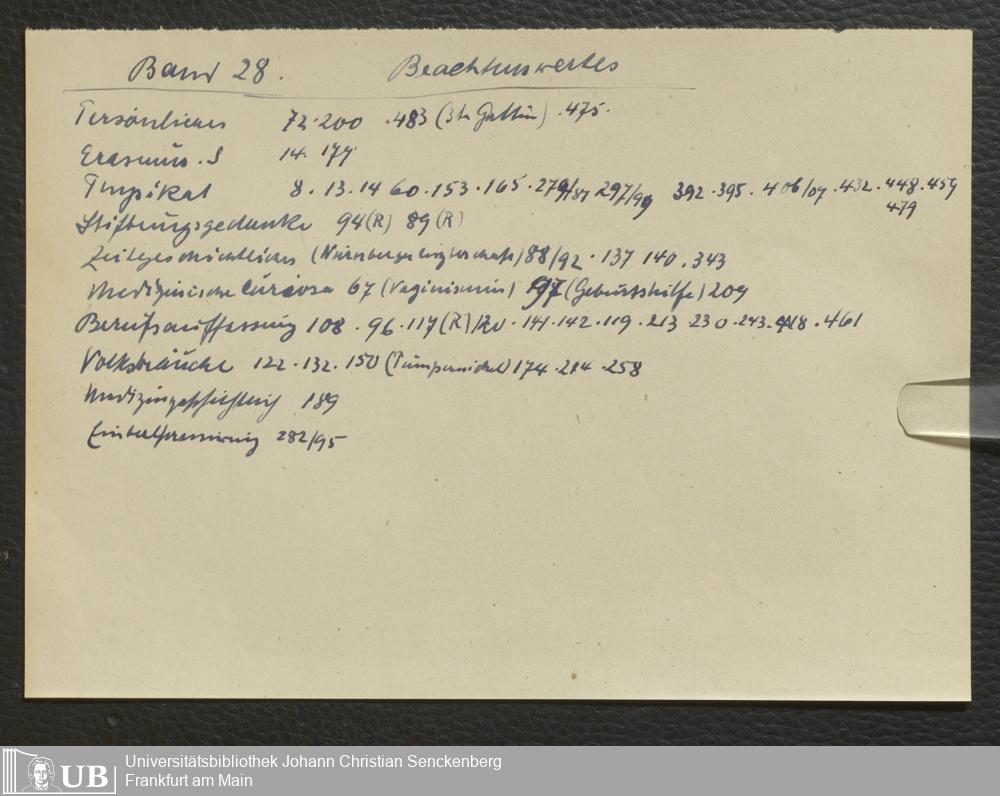 Band 28. Beachtenswertes
Persönliches 72. 200 . 483 (3te Gattin) . 475.
Erasmus. S 14. 177
Physikat 8. 13. 14 60. 153. 165. 392. 395. 406/07. 432. 448. 459
479
Stiftungsgedanke 94 (R) 89 (R)
Zeitgeschichtliches (Nürnberger 88/92. 137 140. 343
Medizinische Curiosa 67 (Vaginismus) 197 (Geburtshilfe) 209
Berufsauffassung 108. 96. 117 (R) 120. 141. 142. 119. 213 230. 243. 461
Volksbräuche 122. 132. 150 (Pumpernickel) 174. 214. 258
Medizingeschichtlich 189
Einbalsamierung 282/95
UB
Universitätsbibliothek Johann Christian Senckenberg
Frankfurt am Main